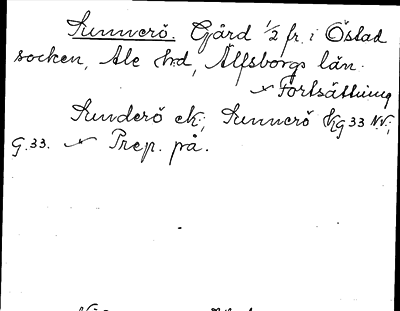 Sunnerö. Gård 1/2 fr. i Östad
socken, Ale hd, Älfsborgs län.
Fortsättning
Sunderö ek; Sunnerö Kg 33 NV;
G. 33. Prep. på.